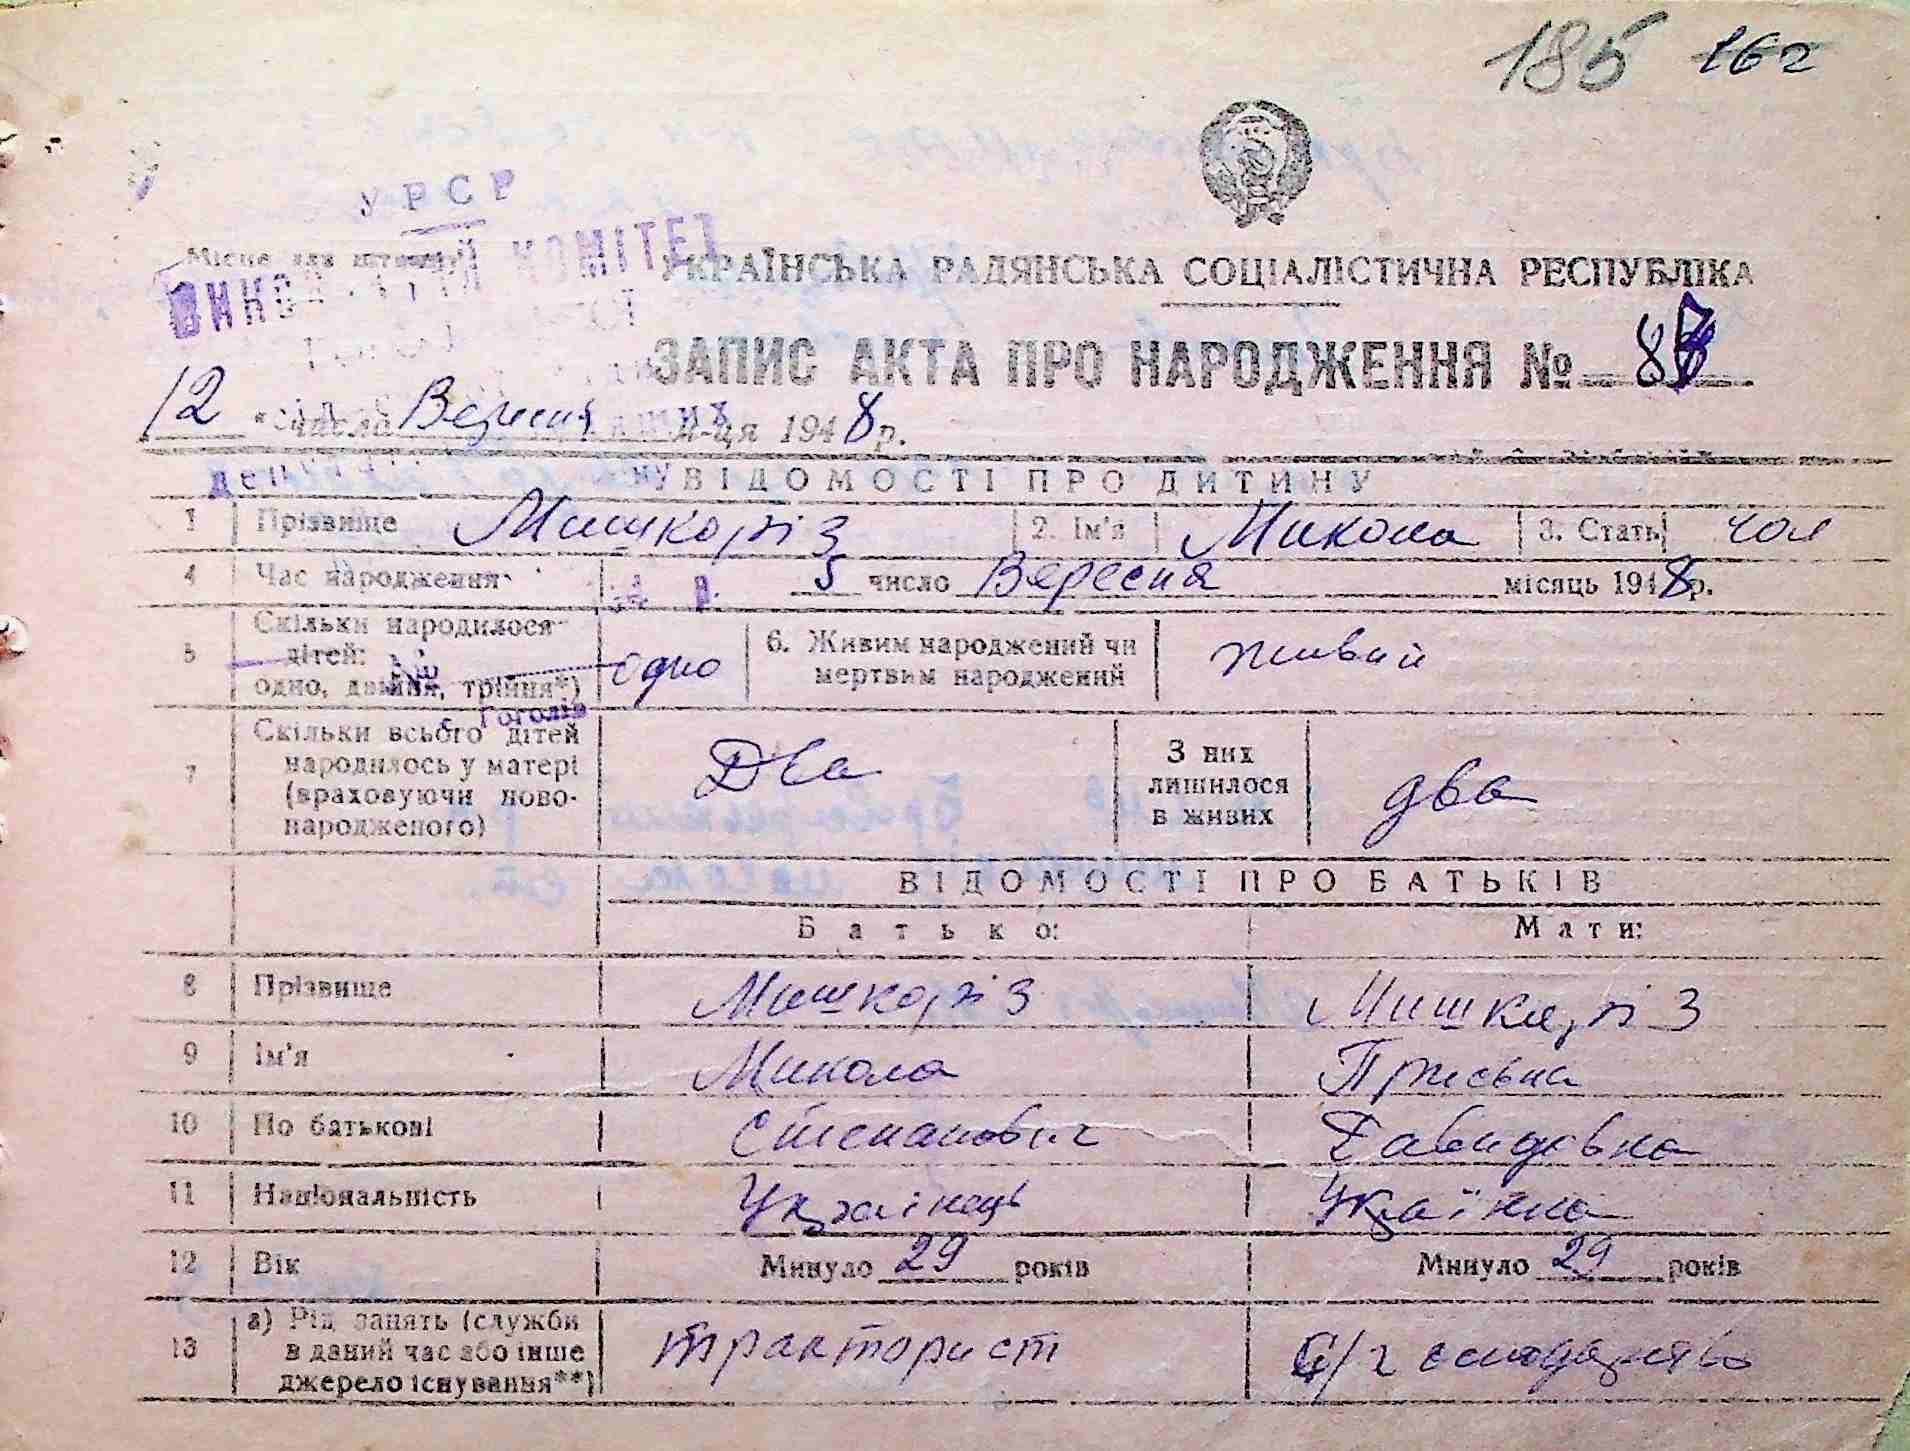 185 162
УРСР
Місце для штампу
КОМІТЕТ
УКРАЇНСЬКА РАДЯНСЬКА СОЦІАЛІСТИЧНА РЕСПУБЛІКА
ЗАПИС АКТА ПРО НАРОДЖЕННЯ №
12 числа Вересня м-ця 1948 р.
ВІДОМОСТІ ПРО ДИТИНУ
1 Прізвище Мишкоріз 2. Ім'я Микола 3. Стать чол
4 Час народження 5 число Вересня місяць 1948 р.
5 Скільки народилося дітей: одно, двійня, трійня*) одно 6. Живим народжений чи мертвим народжений живий
Гоголів
7 Скільки всього дітей народилось у матері (враховуючи новонародженого) Два З них лишилося в живих два
ВІДОМОСТІ ПРО БАТЬКІВ
Батько: Мати:
8 Прізвище Мишкоріз Мишкоріз
9 Ім'я Микола
10 По батькові Степанович Давидовна
11 Національність Українець Українка
12 Вік Минуло 29 років Минуло 29 років
13 а) Рід занять (служби в даний час або інше джерело існування**) тракторист